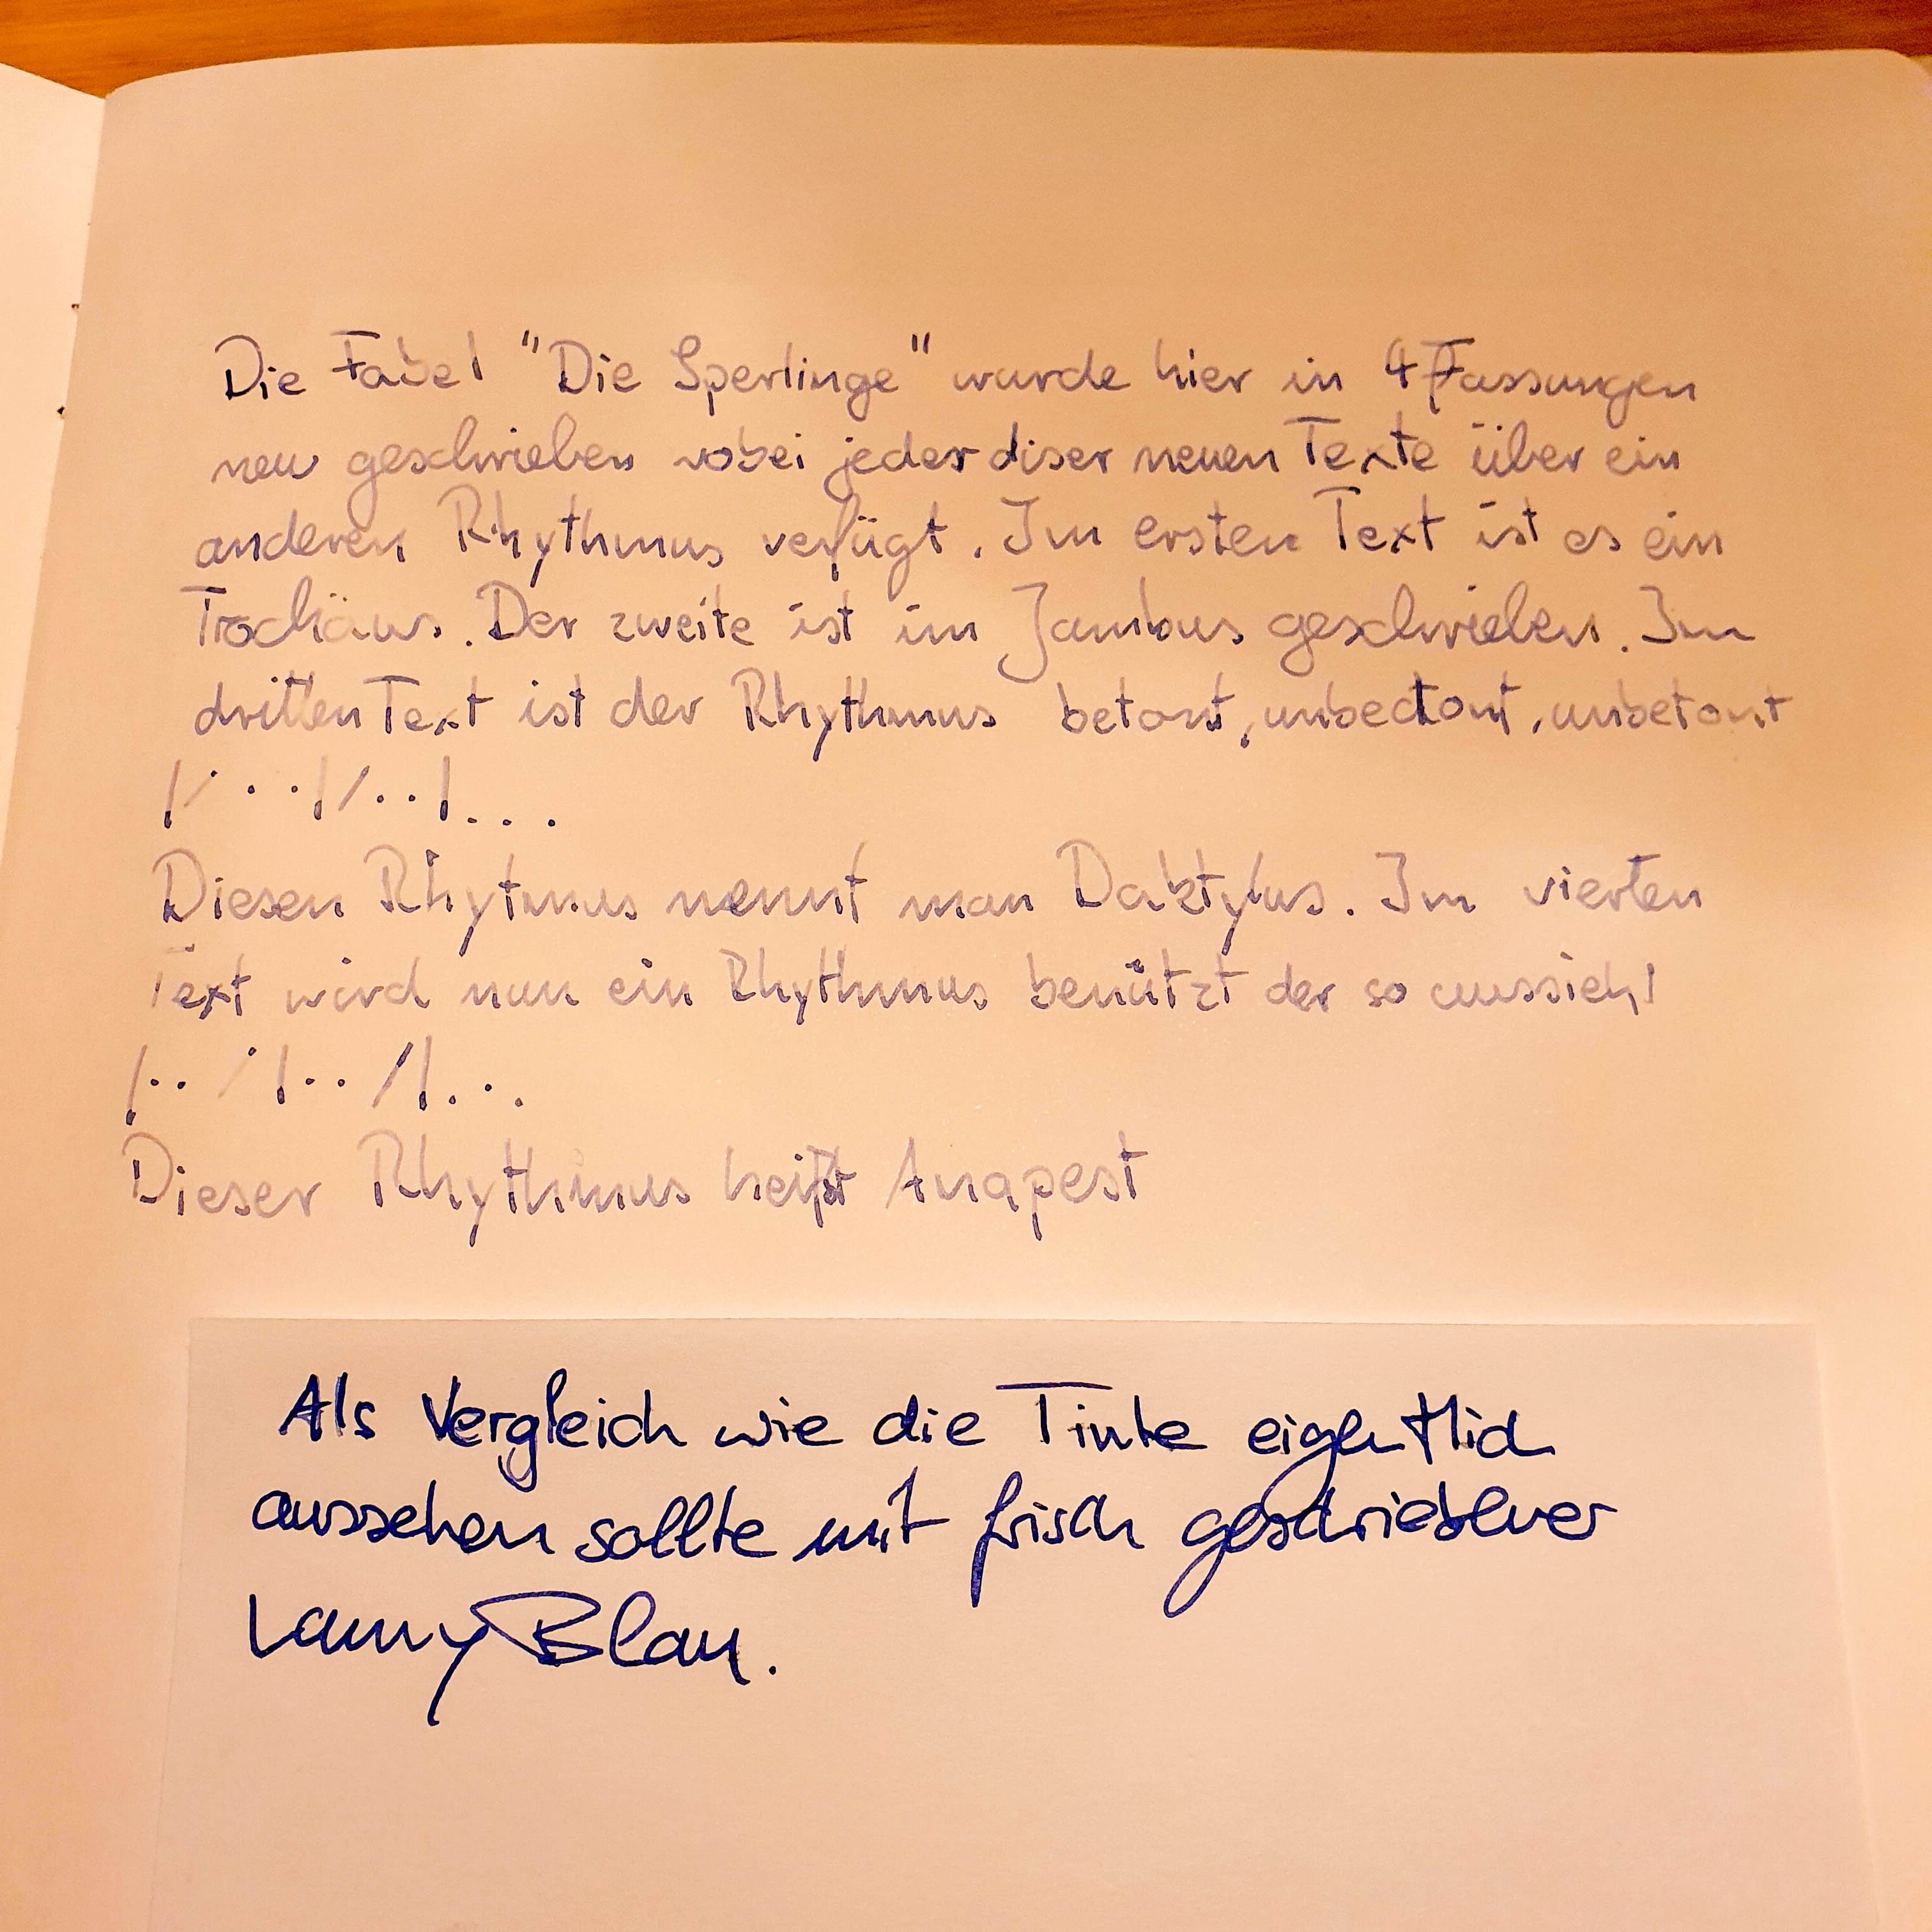 Die Fabel "Die Sperlinge" wurde hier in 4 Fassungen
neu geschrieben wobei jeder diser neuen Texte über ein
anderen Rhythmus verfügt. Im ersten Text ist es ein
Trochäus. Der zweite ist im Jambus geschrieben. Im
dritten Text ist der Rhythmus betont, unbetont, unbetont
|/ · · | / · · | . . .
Diesen Rhytmus nennt man Daktylus. Im vierten
Text wird nun ein Rhythmus benützt der so aussieht
| · · / | · · / | . . .
Dieser Rhythmus heißt Anapest
Als Vergleich wie die Tinte eigentlich
aussehen sollte mit frisch geschriebener
Lamy Blau.